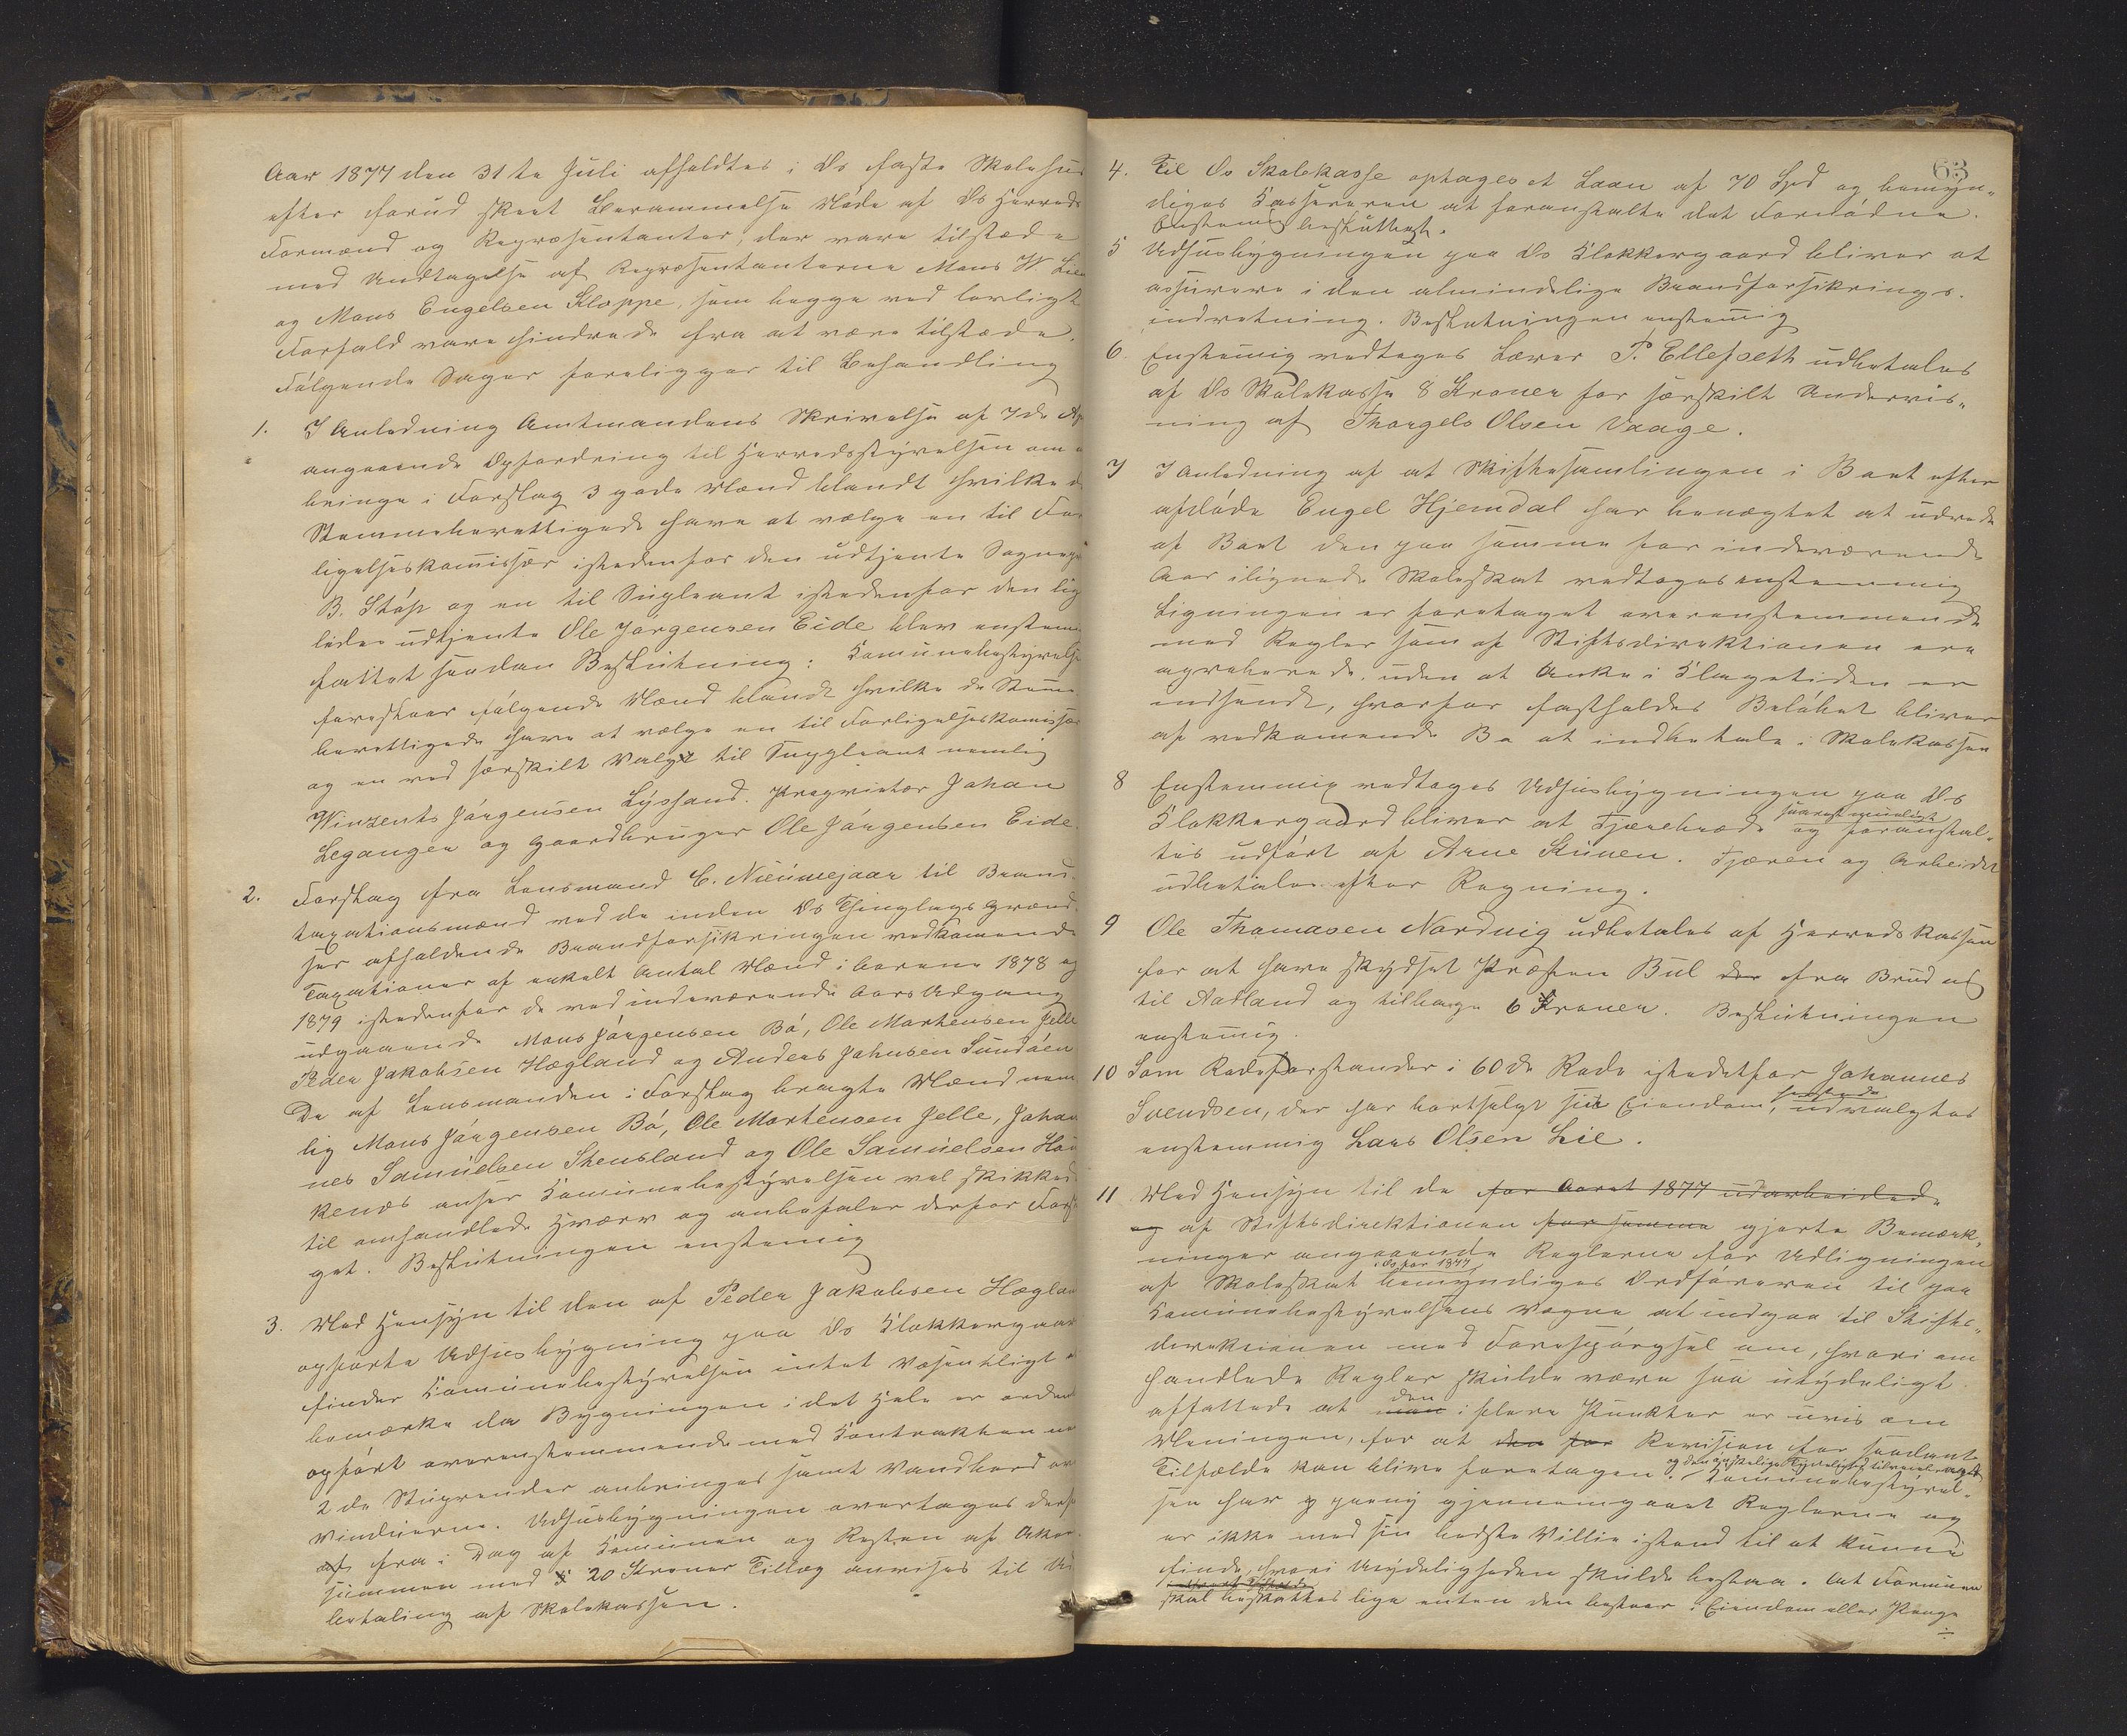 Aar 1877 den 31te Juli afholdtes i Os faste Skolehus
efter forud skeet Berammelse Møde af Os Herreds
Formænd og Repræsentanter, der vare tilstæde
med Undtagelse af Repræsentanterne Mons W Lien
og Mons Engelsen Kloppe, som begge ved lovligt
Forfald vare hindrede fra at være tilstæde.
Følgende Sager foreligger til Behandling
1. I Anledning Amtmandens Skrivelse af 7de
angaaende Opfordring til Herredsstyrelsen om
bringe i Forslag 3 gode Mænd blandt hvilke
Stemmeberettigede have at vælge en til For
ligelseskomissær istedenfor den udtjente Sogneprest
B. Støp og en til Supleant istedenfor den lige
ledes udtjente Ole Jørgensen Eide blev enstem
fattet saadan Beslutning: Komunebestyrelsen
foreslaar følgende Mænd blandt hvilke de Stemme
berettigede have at vælge en til Forligelseskomissær
og en ved særskilt Valg til Suppleant nemlig
Winzents Jørgensen Lyssand. Proprietor Johan
Legangen og Gaardbruger Ole Jørgensen Eide.
2. Forslag fra Lensmand C. Nieumejaar til Brand-
taxationsmænd ved de inden Os Thinglags Grænd
ser afholdende Brandforsikringen vedkomende
Taxationer af enkelt Antal Mænd i Aarene 1878 og
1879 istedenfor de ved indeværende Aars Udgang
udgaaende Mons Jørgensen Bø, Ole Mortensen Jelle
Peder Jakobsen Hægland og Anders Johnsen Sundøen
De af Lensmanden i Forslag bragte Mænd nem
lig Mons Jørgensen Bø, Ole Mortensen Jelle, Johan
nes Samuelsen Skeusland og Ole Samuelsen Hau
kenæs anser Komunebestyrelsen vel skikkede
til omhandlede Hværv og anbefaler derfor Forsla
get. Beslutningen enstemig
3. Med Hensyn til den af Peder Jakobsen Hægland
opførte Udhusbygning paa Os Klokkergaard
finder Komunebestyrelsen intet væsentligt at
bemærke da Bygningen i det Hele er ordent
opført overenstemmende med Kontrakten
2de Stuprender anbringes samt Vandbord over
Vinduerne. Udhusbygningen overtages derfor
fra i Dag af Komunen og Resten af Akor
summen med 20 Kroner Tillæg anvises til Ud
betaling af Skolekassen.
63
4. Til Os Skolekasse optages et Laan af 70 Spd og bemyn„
diges Kassereren at foranstalte det Fornødne.
Enstemig besluttet.
5 Udhusbygningen paa Os Klokkergaard bliver at
assurere i den almindelige Brandforsikrings-
indretning. Beslutningen enstemig
6. Enstemig vedtoges Lærer P. Ellefseth udbetales
af Os Skolekasse 8 Kroner for særskilt Undervis„
ning af Thorgels Olsen Vaage.
7 I Anledning af at Skiftesamlingen i Boet efter
afdøde Engel Hjemdal har benægtet at udrede
af Boet den paa samme for indeværende
Aar ilignede Skoleskat vedtoges enstemmig
Ligningen er foretaget overenstemmende
med Regler som af Stiftsdirektionen ere
aproberede, uden at Anke i Klagetiden er
indsendt, hvorfor fastholdes Beløbet bliver
af vedkomende Bo at indbetale i Skolekassen
8 Enstemmig vedtoges Udhusbygningen paa Os
Klokkergaard bliver at Tjærebræde snarest mueligt og foranstal„
tes udført af Arne Kuven. Tjæren og Arbeidet
udbetales efter Regning.
9 Ole Thomasen Nordvig udbetales af Herredskassen
for at have skydset Presten Bul der fra Brud
til Aadland og tilbage 6 Kroner. Beslutningen
enstemig.
10 Som Rodeforstander i 60de Rode istedetfor Johannes
Svendsen, der har bortsolgt sin Eiendom, udvalgtes
enstemmig Lars Olsen Lie.
11 Med Hensyn til de for Aaret 1877 udarbeidede
og af Stiftsdirektionen for samme gjorte Bemærk„
ninger angaaende Reglerne for Udligningen
af Skoleskat i Os for 1877 bemyndiges Ordføreren til paa
Komunebestyrelsens Vegne at indgaa til Stifts„
direktionen med Forespørgsel om, hvori om
handlede Regler skulde være saa utydeligt
affattede at man den i flere Punkter er uvis om
Meningen, for at den for Revision for saadant
Tilfælde kan blive foretagen og den ønskelige Tydelighed tilveiebragt. Komunebestyrel„
sen har paany gjennemgaaet Reglerne og
er ikke med sin bedste Villie istand til at kunne
finde, hvori Utydeligheden skulde bestaa. At Formuen
skal beskattes lige enten den bestaar i Eiendom eller Penge